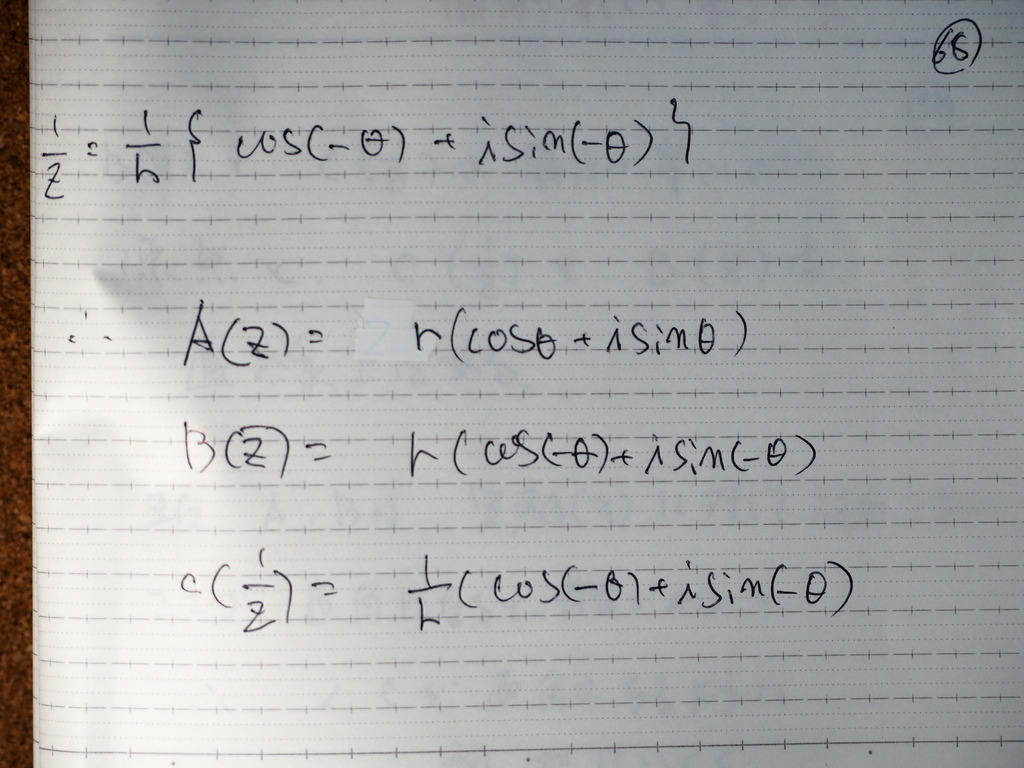 66
1/z = 1/r { cos(-θ) + i sin(-θ) }
∴ A(z) = r(cosθ + i sinθ)
B(z̄) = r(cos(-θ) + i sin(-θ)
C(1/z) = 1/r (cos(-θ) + i sin(-θ)